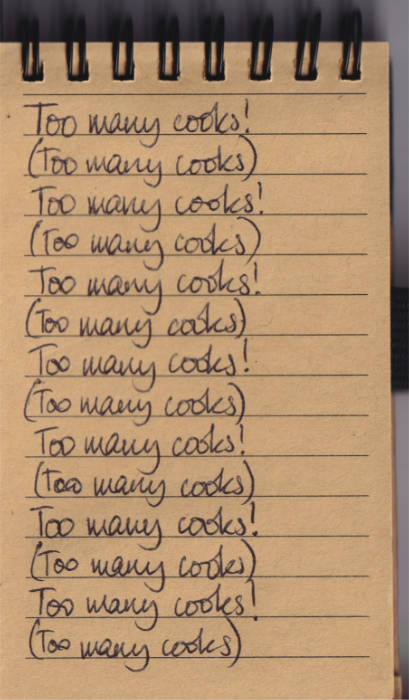 Too many cooks!
(Too many cooks)
Too many cooks!
(Too many cooks)
Too many cooks!
(Too many cooks)
Too many cooks!
(Too many cooks)
Too many cooks!
(Too many cooks)
Too many cooks!
(Too many cooks)
Too many cooks!
(Too many cooks)